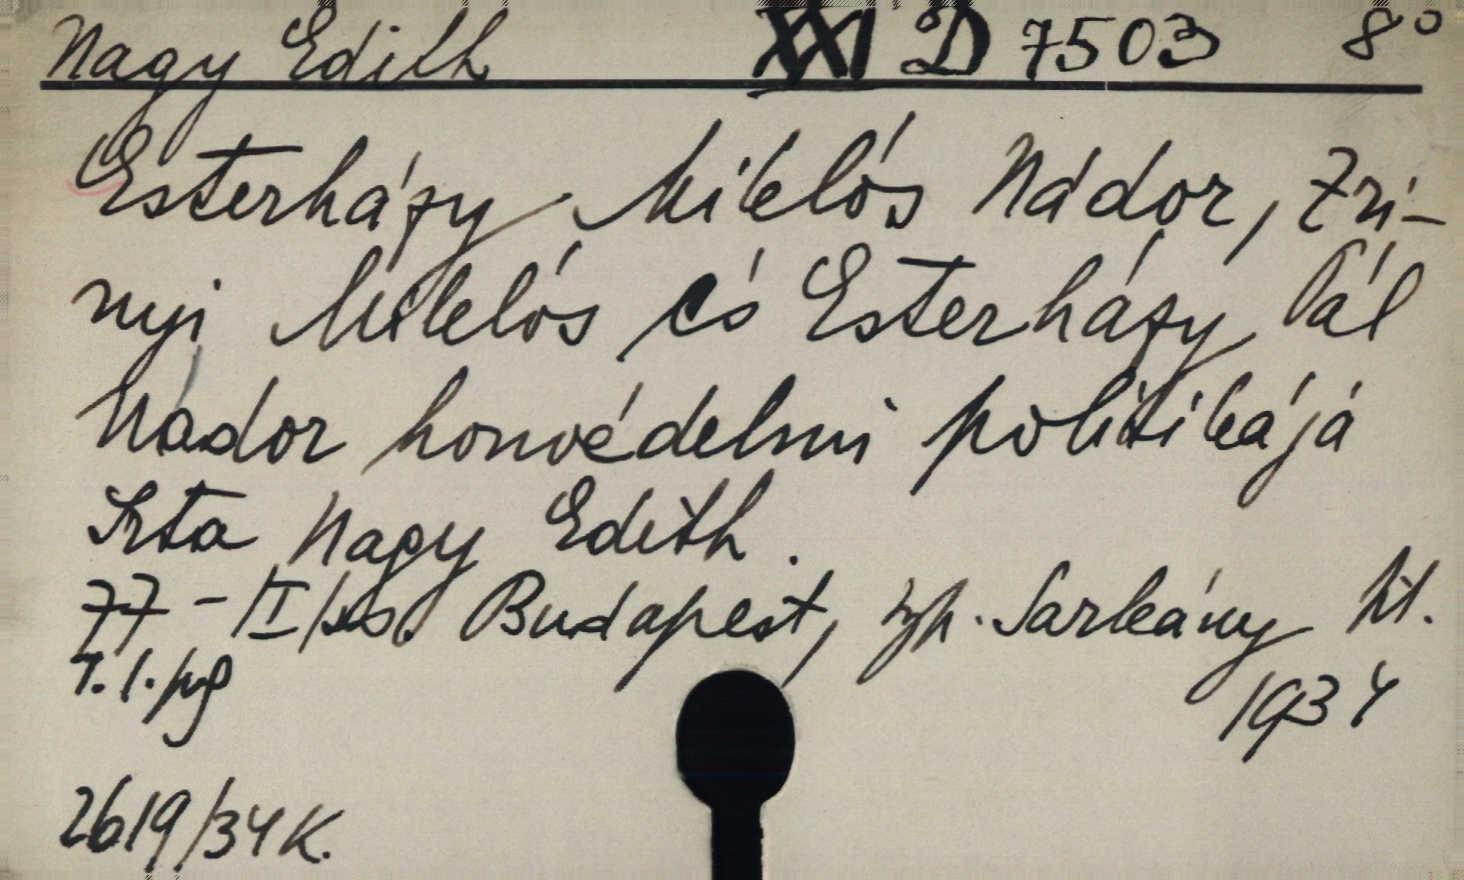 Nagy Edith XXI D 7503 8°
Esterházy Miklós Nádor, Zri-
nyi Miklós és Esterházy Pál
Nádor honvédelmi politikájá
Irta Nagy Edith.
77 - Budapest, Sarkány
1. l. 1934
2619/34 K.